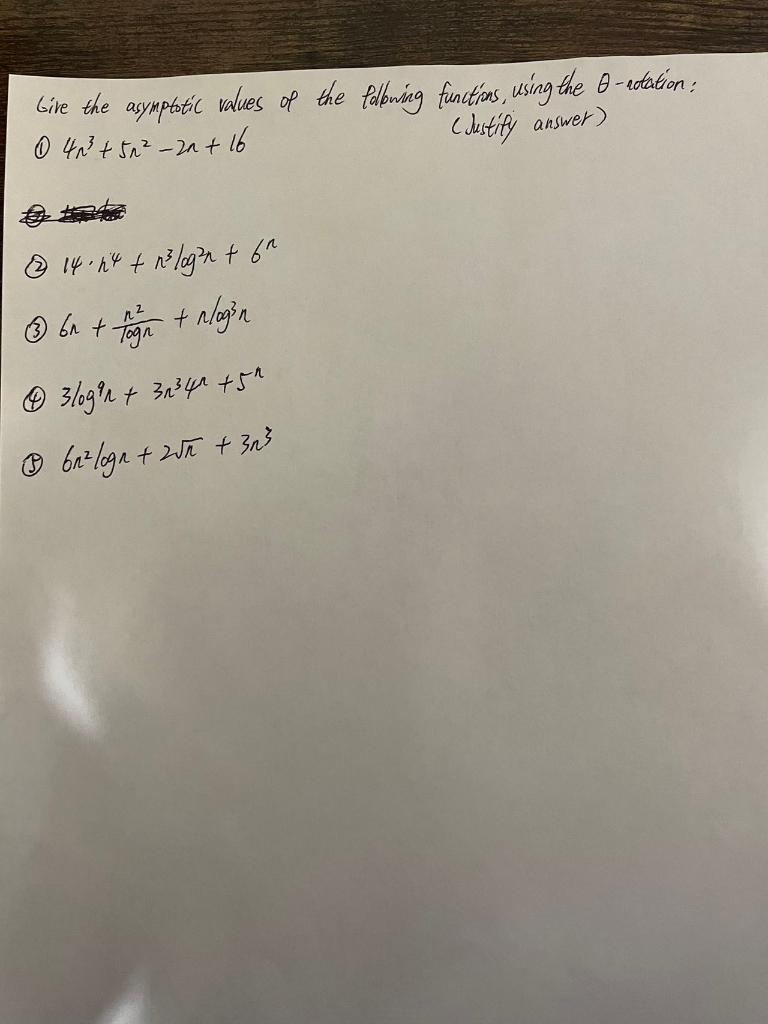 Give the asymptotic values of the following functions, using the θ-notation:
(Justify answer)
① 4n³ + 5n² - 2n + 16
② 14 · n⁴ + n³log²n + 6ⁿ
③ 6n + n²/logn + nlog³n
④ 3log⁹n + 3n³4ⁿ + 5ⁿ
⑤ 6n²logn + 2√n + 3n³